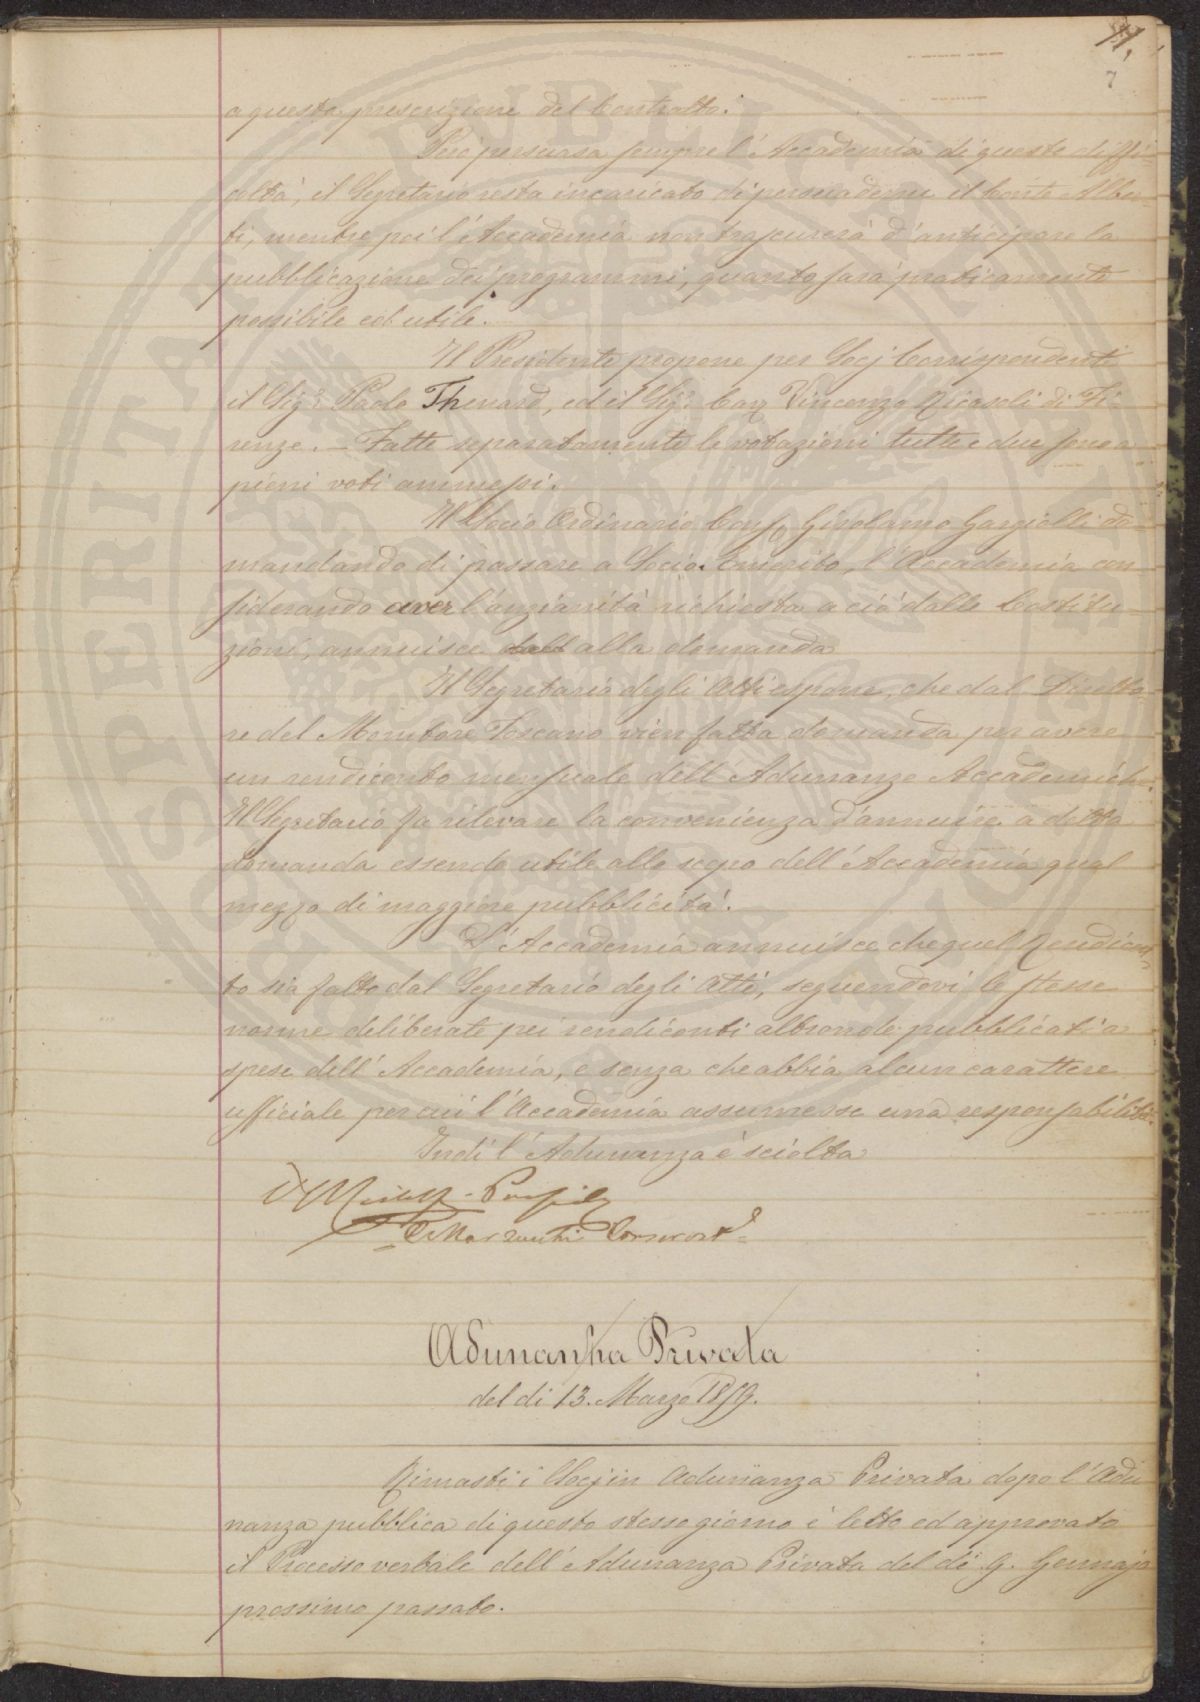 11,
7
a questa prescrizione del Contratto.
Però persuasa sempre l'Accademia di queste diffi-
coltà, il Segretario resta incaricato di persuaderne il Conte Alber-
ti, mentre poi l'Accademia non trascurerà d'anticipare la
pubblicazione dei programmi, quanto sarà praticamente
possibile ed utile.
Il Presidente propone per Socj Corrispondenti
il Sig.r Paolo Thenard, ed il Sig.r Cav. Vincenzo Ricasoli di Fi-
renze. — Fatte separatamente le votazioni tutti e due sono a
pieni voti ammessi.
Il Socio Ordinario Girolamo Gargiolli do-
mandando di passare a Socio Emerito, l'Accademia con
siderando aver l'anzianità richiesta a ciò dalle Costitu-
zioni, annuisce alla domanda
Il Segretario degli Atti espone, che dal Dretto-
re del Monitore Toscano vien fatta domanda per avere
un rendiconto mensuale dell'Adunanze Accademiche.
Il Segretario fa rilevare la convenienza d'annuire a detta
domanda essendo utile allo scopo dell'Accademia qual
mezzo di maggiore pubblicità.
L'Accademia annuisce che quel Rendicon-
to sia fatto dal Segretario degli Atti, seguendovi le stesse
norme deliberate pei rendiconti altronde pubblicati a
spese dell'Accademia, e senza che abbia alcun carattere
ufficiale per cui l'Accademia assumesse una responsabilità.
Indi l'Adunanza è sciolta
Adunanza Privata
del dì 13. Marzo 1859.
Rimasti i Socj in Adunanza Privata dopo l'Adu
nanza pubblica di questo stesso giorno è letto ed approvato
il Processo verbale dell'Adunanza Privata del dì 9. Gennajo
prossimo passato.
DI PUBLICAE PROSPERITATI